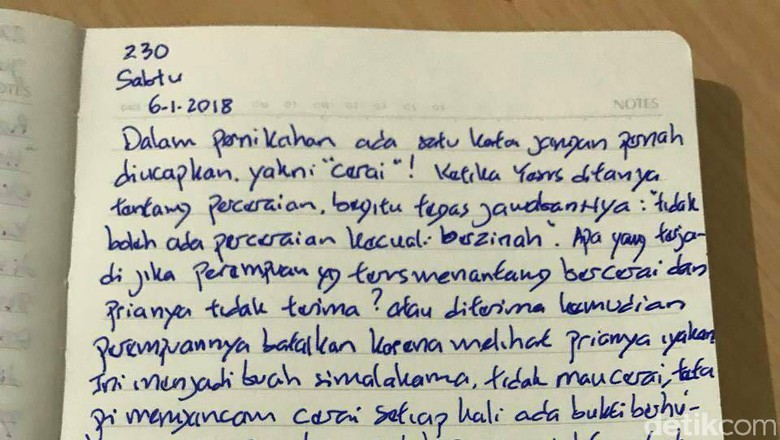 230
Sabtu
6-1-2018
NOTES
Dalam pernikahan ada satu kata jangan pernah
diucapkan. yakni "cerai"! Ketika Yesus ditanya
tentang perceraian, begitu tegas jawabanNya: "tidak
boleh ada perceraian kecuali berzinah". Apa yang terja-
di jika perempuan yg terus menantang bercerai dan
prianya tidak terima? atau diterima kemudian
perempuannya batalkan karena melihat prianya iyakan
Ini menjadi buah simalakama, tidak mau cerai, teta
pi mengancam cerai setiap kali ada bukti berhu-
detikcom